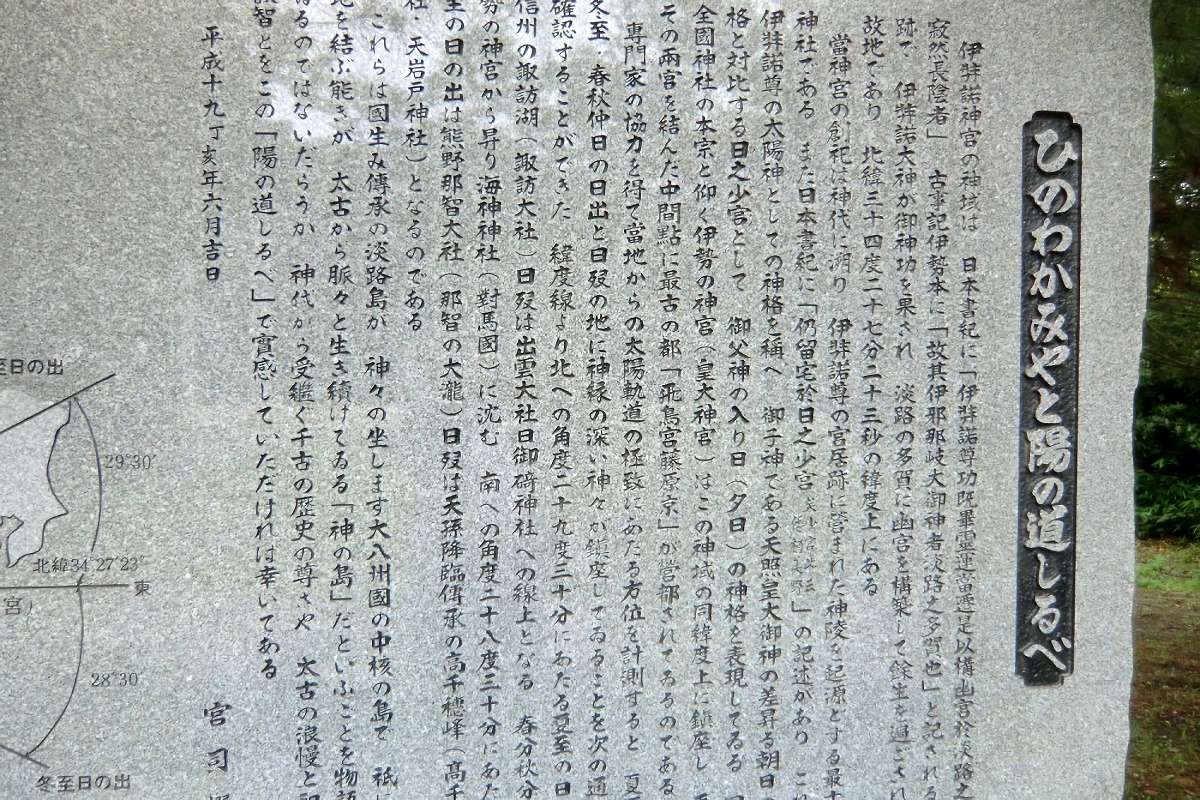 ひのわかみやと陽の道しるべ
伊弉諾神宮の神域は 日本書紀に「伊弉諾尊功既畢靈運當遷是以構幽宮於淡路之
寂然長隱者」 古事記伊勢本に「故其伊那那岐大御神者淡路之多賀也」と記される
跡で 伊弉諾大神が御神功を果され 淡路の多賀に幽宮を構築して餘生を過ごされ
故地であり 北緯三十四度二十七分二十三秒の緯度上にある
當神宮の創祀は神代に溯り 伊弉諾尊の宮居跡に營まれた神陵を起源とする最
神社である また日本書紀に「仍留宅於日之少宮 」の記述があり こ
伊弉諾尊の太陽神としての神格を稱へ 御子神である天照皇大御神の差昇る朝日
格と対比する日之少宮として 御父神の入り日（夕日）の神格を表現してゐる
全國神社の本宗と仰ぐ伊勢の神宮（皇大神宮）はこの神域の同緯度上に鎮座し
その兩宮を結んだ中間點に最古の都「飛鳥宮藤原京」が營都されてゐるのである
專門家の協力を得て當地からの太陽軌道の極致にあたる方位を計測すると 夏
冬至・春秋仲日の日出と日歿の地に神縁の深い神々が鎮座してゐることを次の通
確認することができた 緯度線より北への角度二十九度三十分にあたる夏至の日
信州の諏訪湖（諏訪大社）日歿は出雲大社日御碕神社 への線上となる 春分秋分
勢の神宮から昇り海神神社（對馬國）に沈む 南への角度二十八度三十分にあた
至の日の出は熊野那智大社（那智の大瀧）日歿は天孫降臨傳承の高千穗峰（高千
社・天岩戸神社）となるのである
これらは國生み傳承の淡路島が 神々の坐します大八州國の中核の島で 祇
地を結ぶ能きが 太古から脈々と生き続けてゐる「神の島」だといふことを物語
得るのではないだらうか 神代から受繼ぐ千古の歴史の尊さや 太古の浪慢と
叡智とをこの「陽の道しるべ」で實感していただければ幸いである
平成十九丁亥年六月吉日
宮司
至日の出
29°30′
北緯34°27′23″
東
宮）
28°30′
冬至日の出